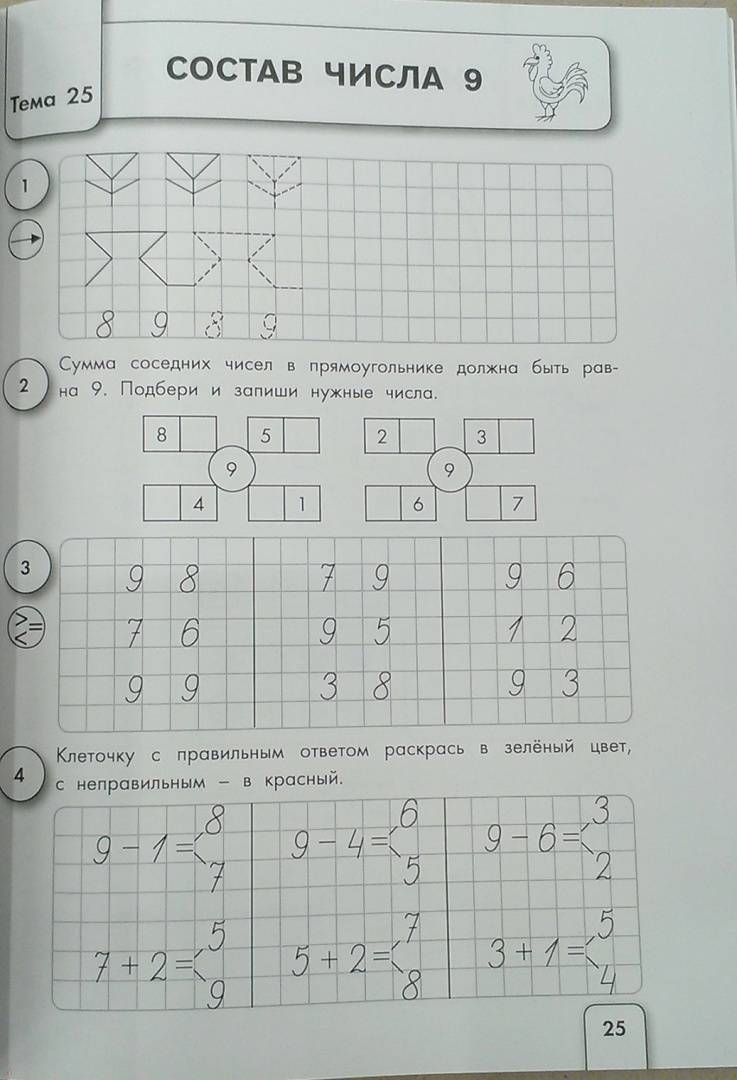 СОСТАВ ЧИСЛА 9
Тема 25
1
8 9 8 9
2
Сумма соседних чисел в прямоугольнике должна быть рав-
на 9. Подбери и запиши нужные числа.
8 5 2 3
9 9
4 1 6 7
3
9 8 7 9 9 6
> < =
7 6 9 5 1 2
9 9 3 8 9 3
4
Клеточку с правильным ответом раскрась в зелёный цвет,
с неправильным – в красный.
8 6 3
9 – 1 = 9 – 4 = 9 – 6 =
7 5 2
5 7 5
7 + 2 = 5 + 2 = 3 + 1 =
9 8 4
25